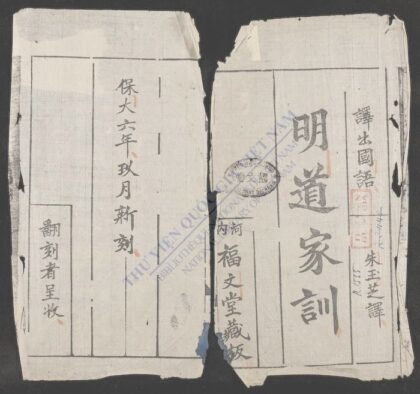 譯出國語
朱玉芝譯
明道家訓
河内
福文堂藏板
保大六年玖月新刻
翻刻者呈收
THƯ VIỆN QUỐC GIA VIỆT NAM